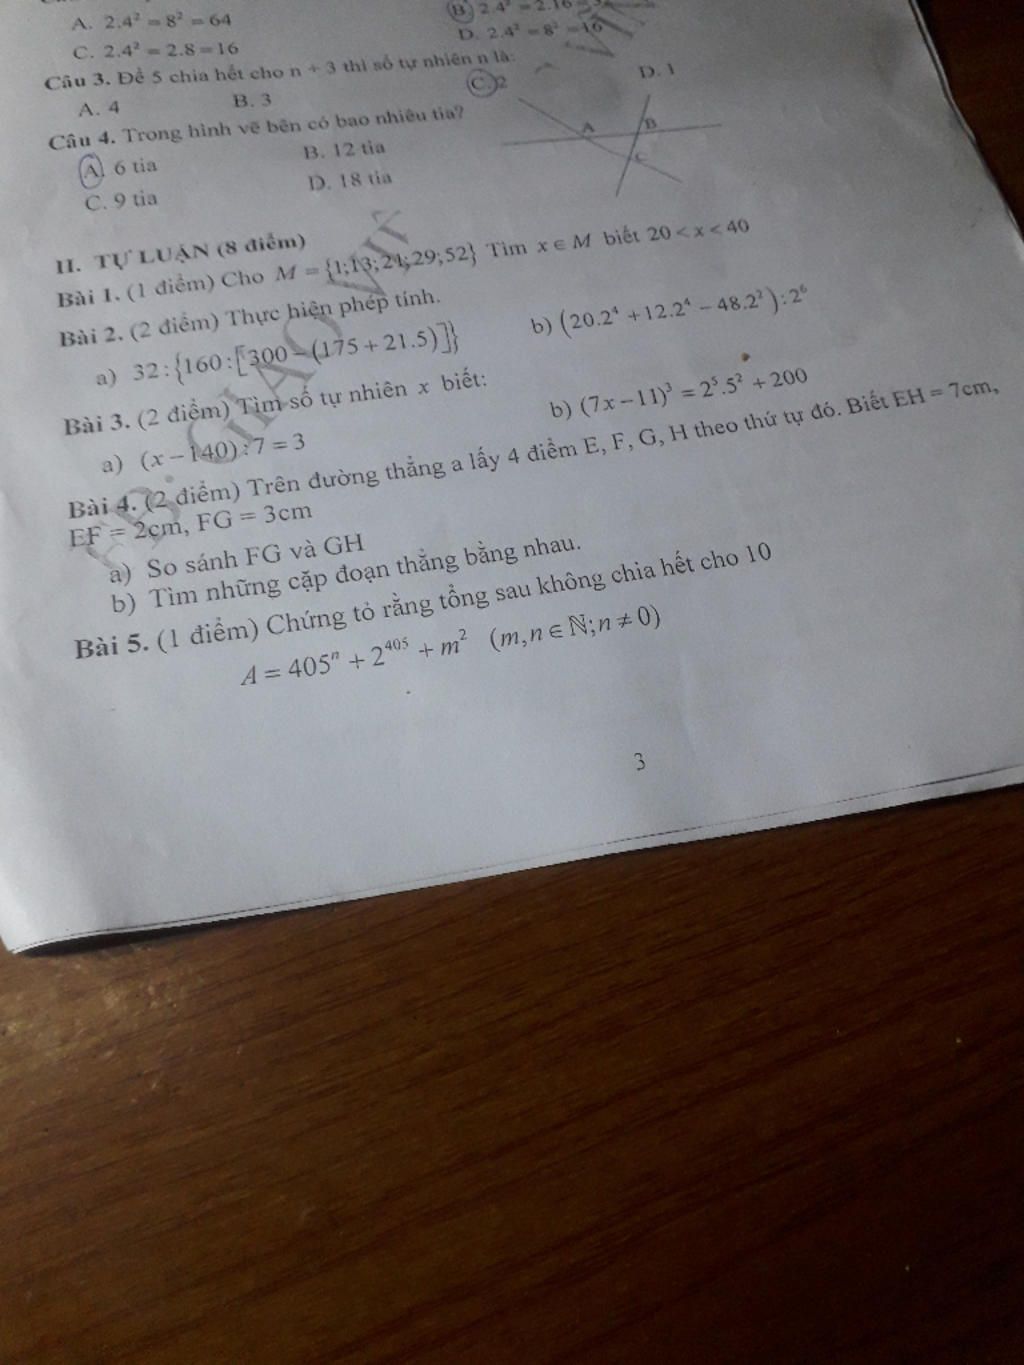 A. 2.4² = 8² = 64
B. 2.4² = 2.16 =
C. 2.4² = 2.8 = 16
D. 2.4² = 8² = 16
Câu 3. Để 5 chia hết cho n + 3 thì số tự nhiên n là:
A. 4 B. 3 C. 2 D. 1
Câu 4. Trong hình vẽ bên có bao nhiêu tia?
A. 6 tia B. 12 tia
C. 9 tia D. 18 tia
A B
C
II. TỰ LUẬN (8 điểm)
Bài 1. (1 điểm) Cho M = {1;13;21;29;52} Tìm x ∈ M biết 20 < x < 40
Bài 2. (2 điểm) Thực hiện phép tính.
a) 32 : {160 : [300 − (175 + 21.5)]} b) (20.2⁴ + 12.2⁴ − 48.2²) : 2⁶
Bài 3. (2 điểm) Tìm số tự nhiên x biết:
a) (x − 140) : 7 = 3 b) (7x − 11)³ = 2⁵.5² + 200
Bài 4. (2 điểm) Trên đường thẳng a lấy 4 điểm E, F, G, H theo thứ tự đó. Biết EH = 7cm,
EF = 2cm, FG = 3cm
a) So sánh FG và GH
b) Tìm những cặp đoạn thẳng bằng nhau.
Bài 5. (1 điểm) Chứng tỏ rằng tổng sau không chia hết cho 10
A = 405ⁿ + 2⁴⁰⁵ + m² (m,n ∈ ℕ; n ≠ 0)
3